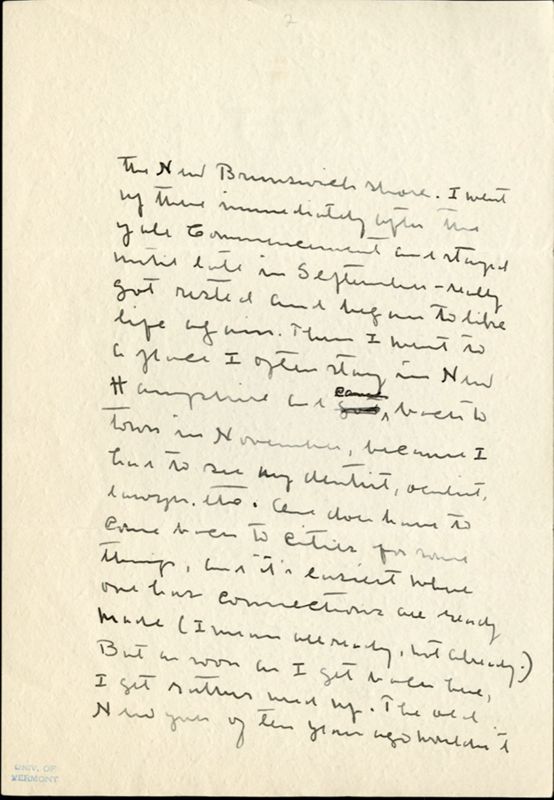 2
the New Brunswick shore. I went
up there immediately after the
Yale Commencement and stayed
until late in September - really
got rested and began to like
life again. Then I went to
a place I often stay in New
Hampshire and came back to
town in November, because I
had to see my dentist, oculist,
lawyer, etc. One does have to
come back to cities for some
things, and it's easiest where
one has connections all ready
made (I mean all ready, not already.)
But as soon as I get back here,
I get rather used up. The old
New York of ten years ago wouldn't
UNIV. OF
VERMONT